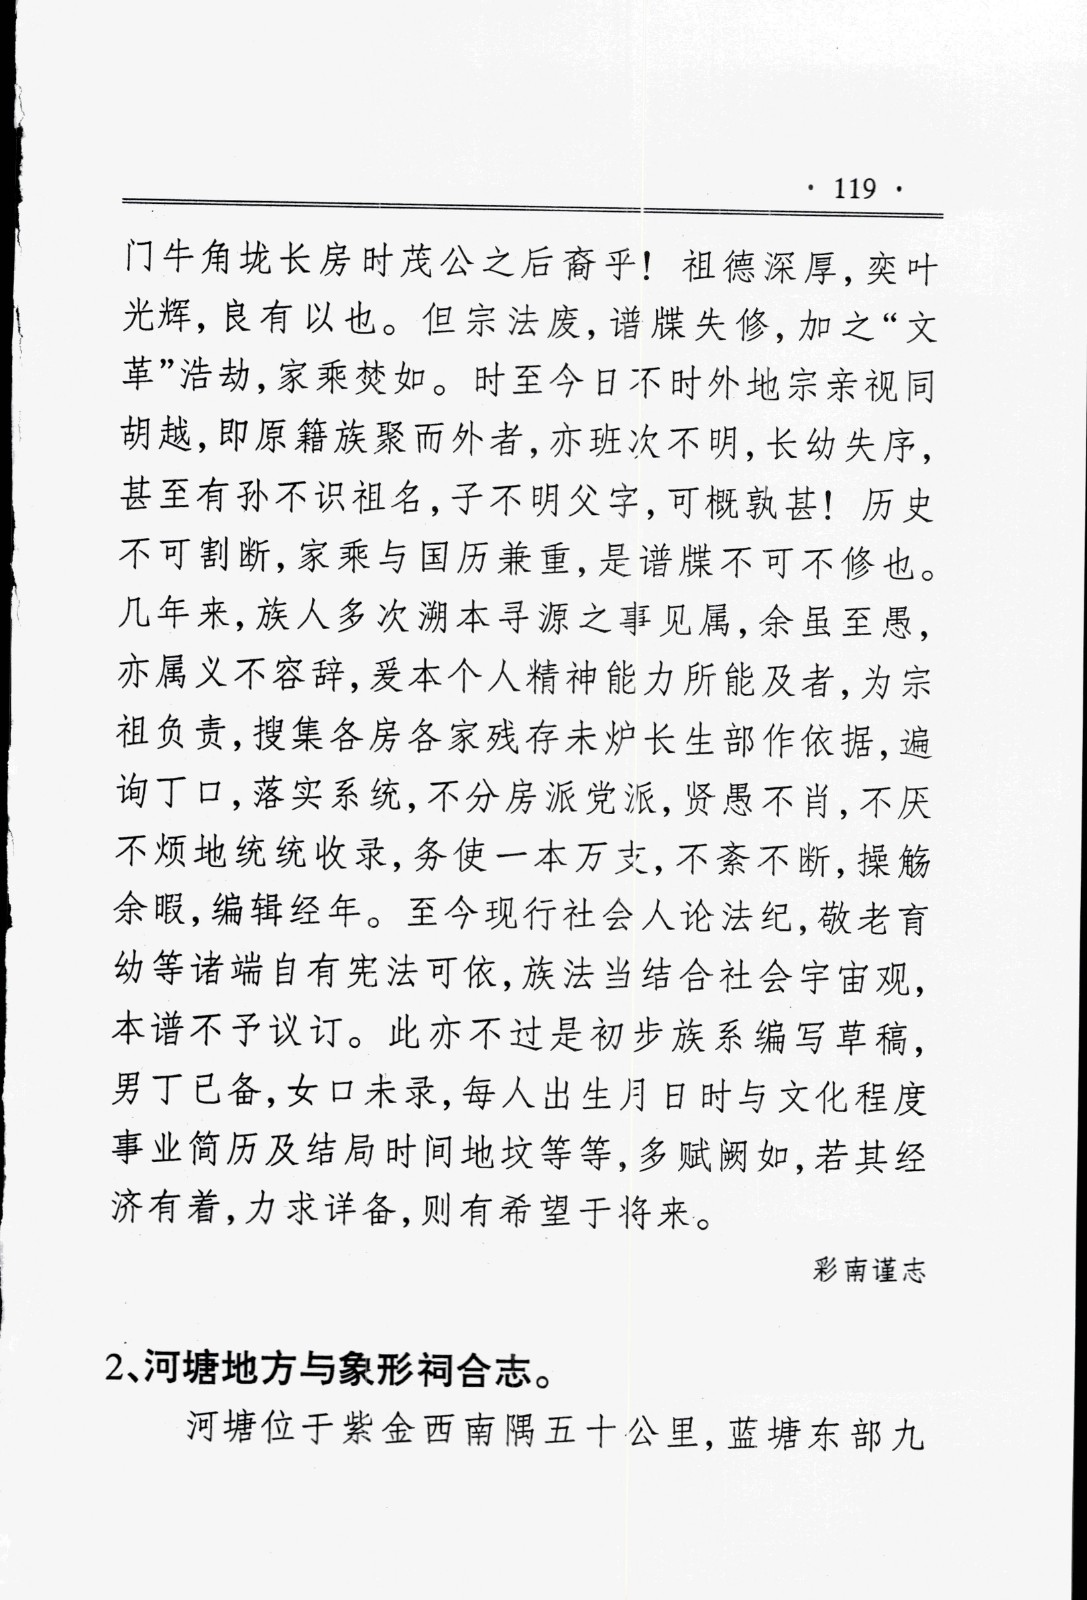 · 119 ·
门牛角垅长房时茂公之后裔乎！祖德深厚，奕叶
光辉，良有以也。但宗法废，谱牒失修，加之“文
革”浩劫，家乘焚如。时至今日不时外地宗亲视同
胡越，即原籍族聚而外者，亦班次不明，长幼失序，
甚至有孙不识祖名，子不明父字，可概孰甚！历史
不可割断，家乘与国历兼重，是谱牒不可不修也。
几年来，族人多次溯本寻源之事见属，余虽至愚，
亦属义不容辞，爰本个人精神能力所能及者，为宗
祖负责，搜集各房各家残存未炉长生部作依据，遍
询丁口，落实系统，不分房派党派，贤愚不肖，不厌
不烦地统统收录，务使一本万支，不紊不断，操觞
余暇，编辑经年。至今现行社会人论法纪，敬老育
幼等诸端自有宪法可依，族法当结合社会宇宙观，
本谱不予议订。此亦不过是初步族系编写草稿，
男丁已备，女口未录，每人出生月日时与文化程度
事业简历及结局时间地坟等等，多赋阙如，若其经
济有着，力求详备，则有希望于将来。
彩南谨志
2、河塘地方与象形祠合志。
河塘位于紫金西南隅五十公里，蓝塘东部九